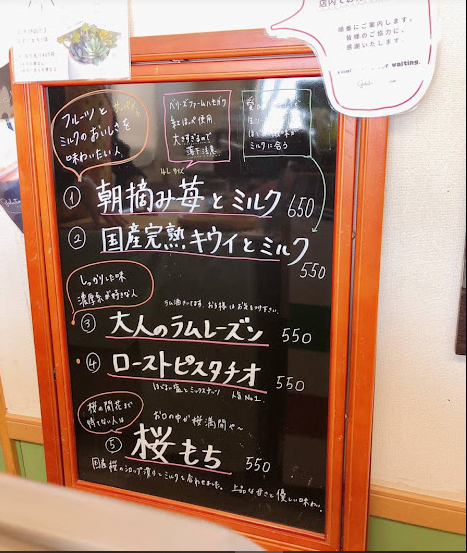 店内でお
順番にご案内します。
皆様のご協力に、
感謝いたします。
for waiting.
フルーツと
ミルクのおいしさを
味わいたい人
ベリーズファーム
紅ほっぺ使用
大きすぎるので
落下注意
ミルクに合う
① 朝摘み苺とミルク 650
② 国産完熟キウイとミルク 550
しっかりした味
濃厚系が好きな人
ラム酒
③ 大人のラムレーズン 550
④ ローストピスタチオ 550
人気No.1
桜の開花まで
待てない人は
お口の中が桜満開や〜
⑤ 桜もち 550
国産桜の
とミルクと合わせました。上品な甘さと優しい味わい。